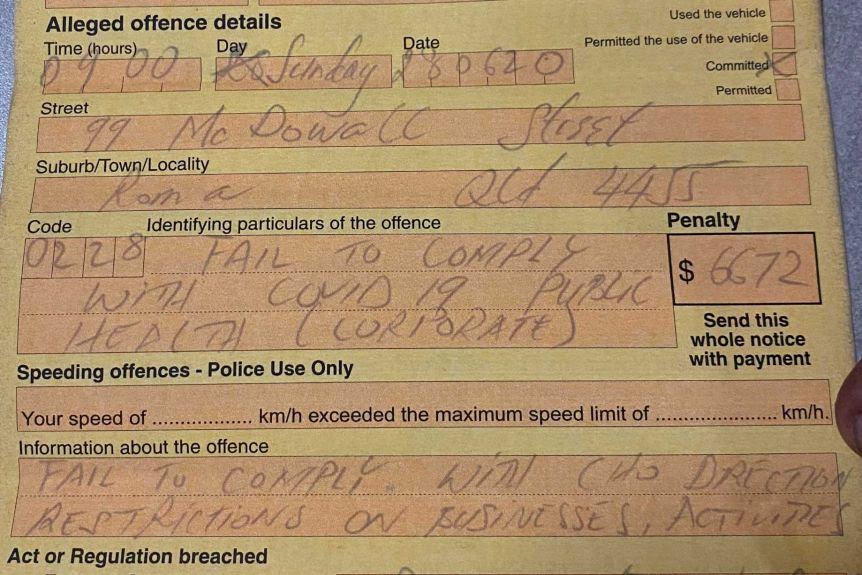 Alleged offence details
Used the vehicle
Time (hours) Day Date Permitted the use of the vehicle
0900 Sunday 280620 Committed X
Permitted
Street
99 McDowall Street
Suburb/Town/Locality
Roma Qld 4455
Code Identifying particulars of the offence Penalty
0228 FAIL TO COMPLY $ 6672
WITH COVID 19 PUBLIC
HEALTH (CORPORATE)
Send this
whole notice
with payment
Speeding offences - Police Use Only
Your speed of ................... km/h exceeded the maximum speed limit of ....................... km/h.
Information about the offence
FAIL TO COMPLY. WITH CHO DIRECTION
RESTRICTIONS ON BUSINESSES, ACTIVITIES
Act or Regulation breached